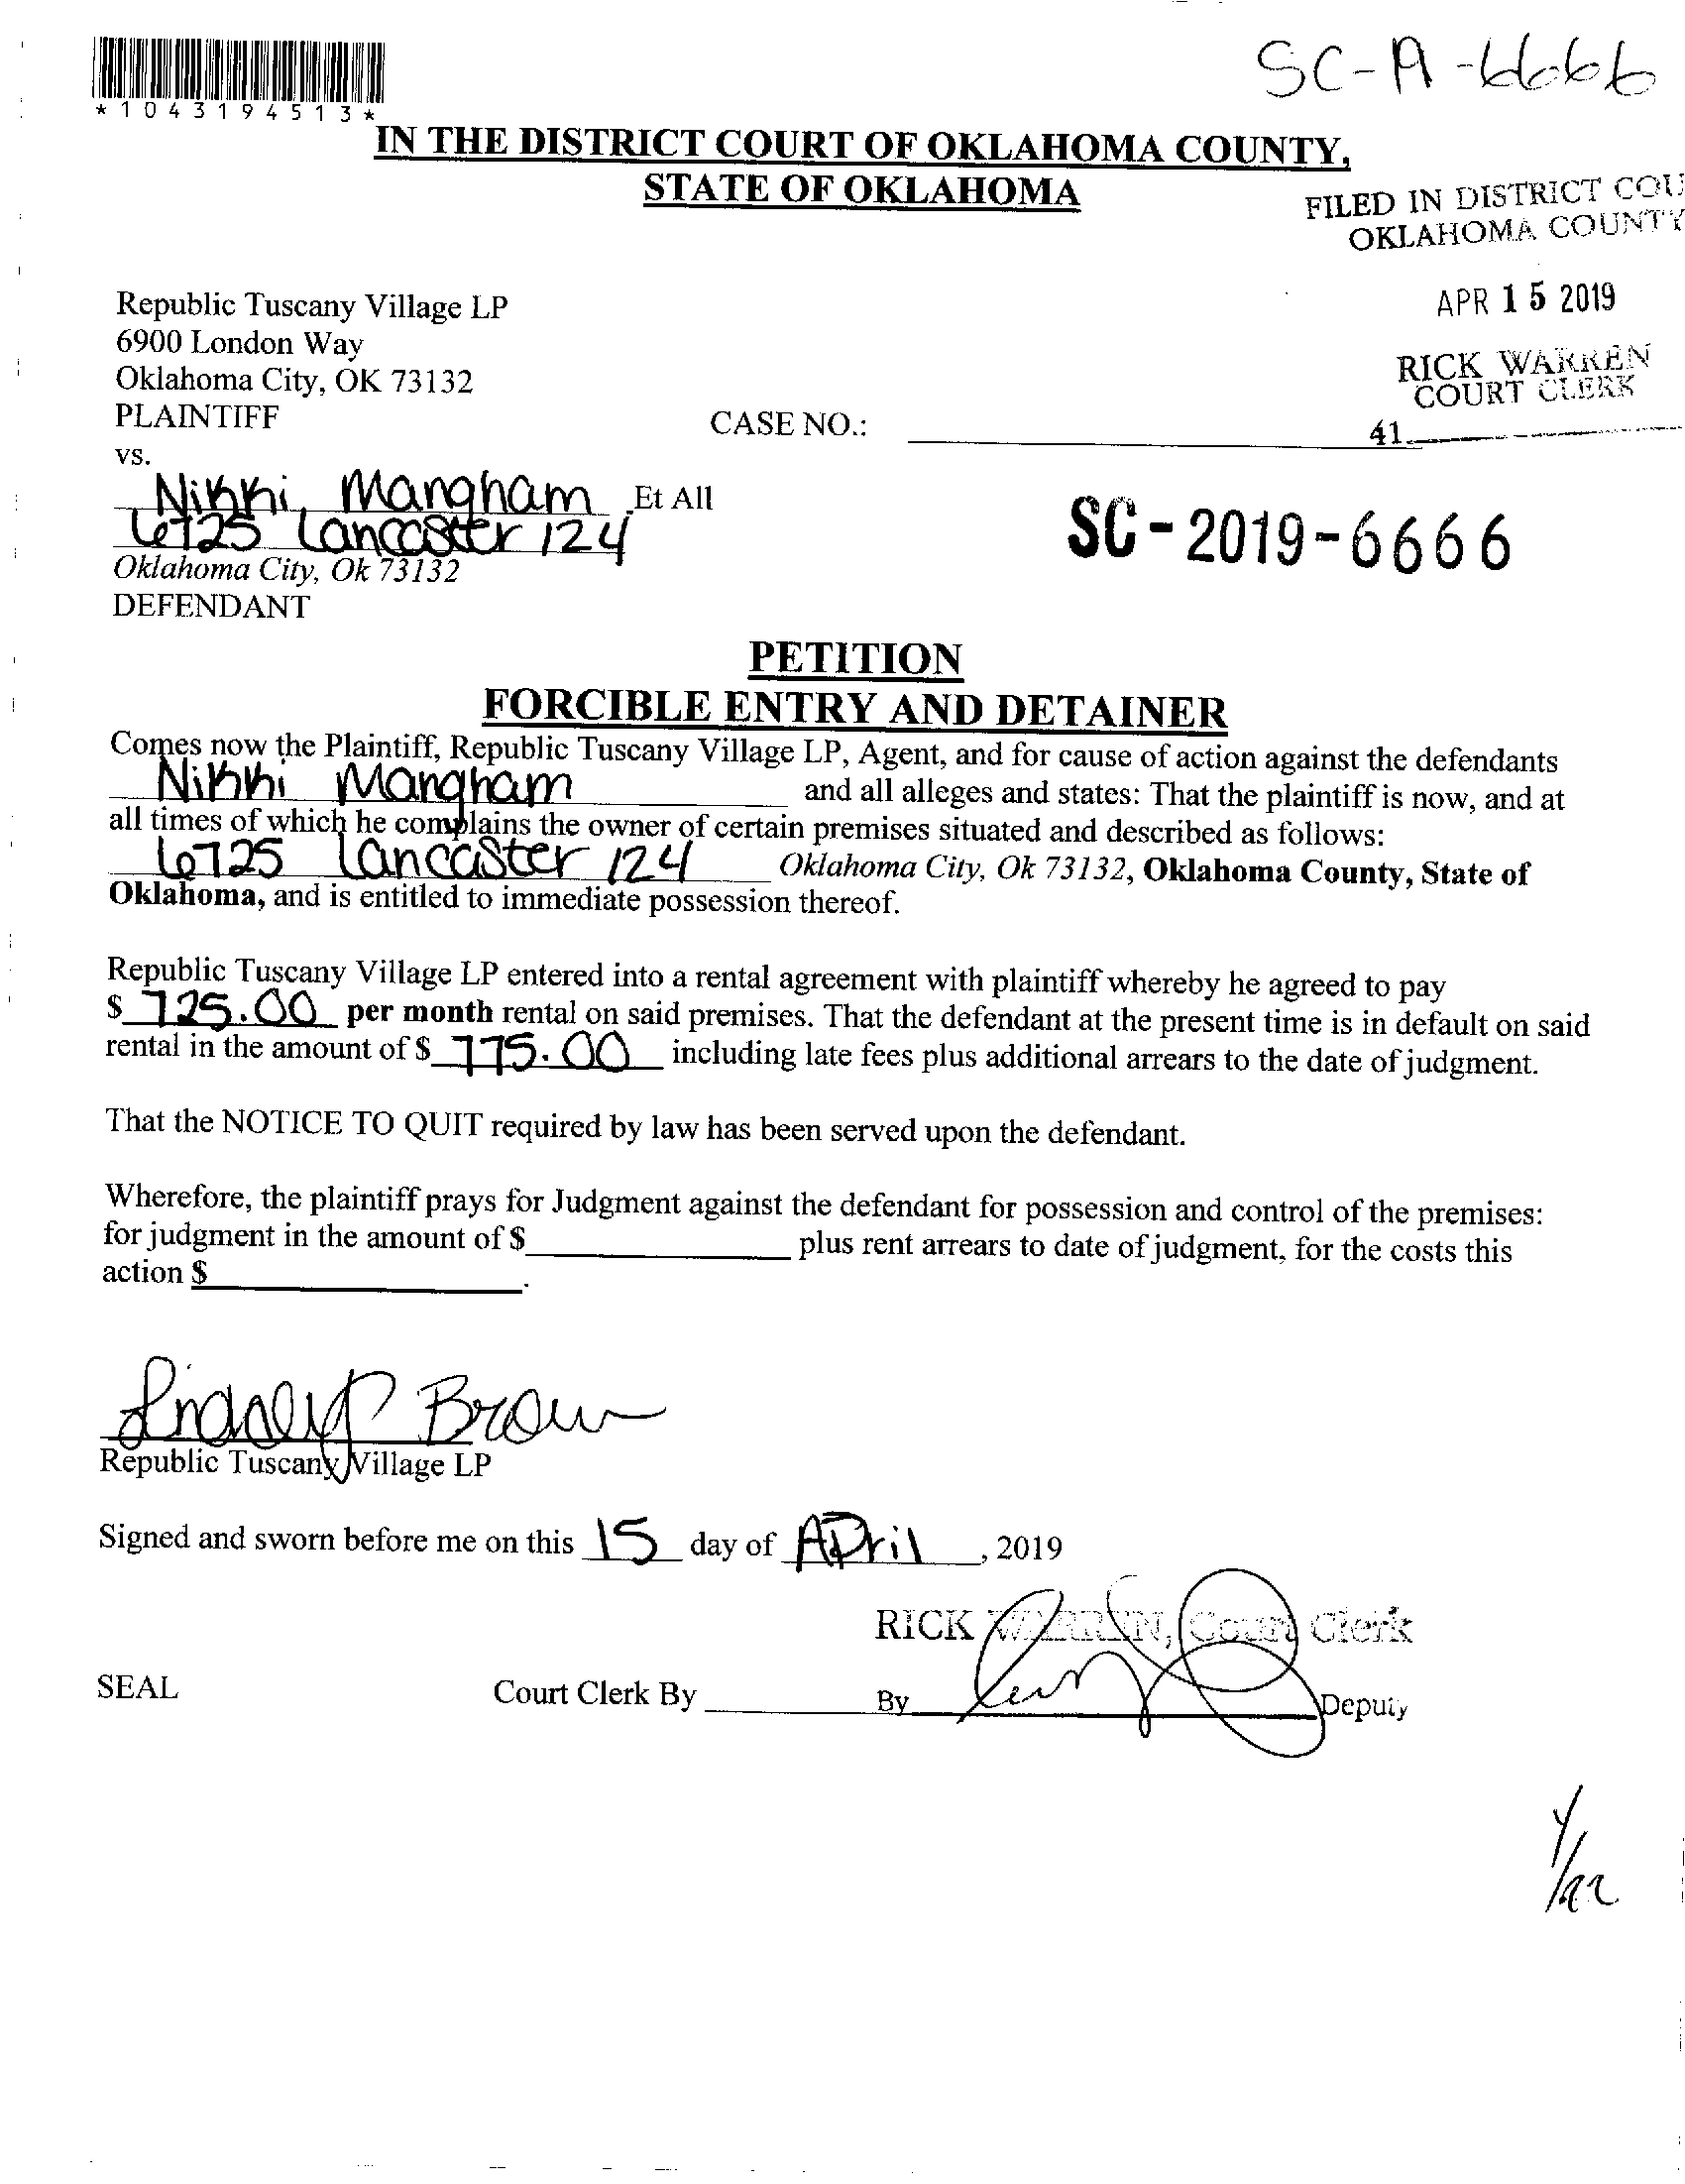 SC-19-6666
*1043194513*
IN THE DISTRICT COURT OF OKLAHOMA COUNTY,
STATE OF OKLAHOMA
FILED IN DISTRICT COU
OKLAHOMA COUNTY
APR 15 2019
RICK WARREN
COURT CLERK
41
Republic Tuscany Village LP
6900 London Way
Oklahoma City, OK 73132
PLAINTIFF
CASE NO.:
vs.
Nikki Mangham Et All
6725 Lancaster 124
Oklahoma City, Ok 73132
DEFENDANT
SC-2019-6666
PETITION
FORCIBLE ENTRY AND DETAINER
Comes now the Plaintiff, Republic Tuscany Village LP, Agent, and for cause of action against the defendants
Nikki Mangham and all alleges and states: That the plaintiff is now, and at
all times of which he complains the owner of certain premises situated and described as follows:
6725 Lancaster 124 Oklahoma City, Ok 73132, Oklahoma County, State of
Oklahoma, and is entitled to immediate possession thereof.
Republic Tuscany Village LP entered into a rental agreement with plaintiff whereby he agreed to pay
$ 725.00 per month rental on said premises. That the defendant at the present time is in default on said
rental in the amount of $ 775.00 including late fees plus additional arrears to the date of judgment.
That the NOTICE TO QUIT required by law has been served upon the defendant.
Wherefore, the plaintiff prays for Judgment against the defendant for possession and control of the premises:
for judgment in the amount of $ plus rent arrears to date of judgment, for the costs this
action $ .
Brown
Republic Tuscany Village LP
Signed and sworn before me on this 15 day of April, 2019
RICK WARREN, Court Clerk
SEAL
Court Clerk By
By Deputy
4/22